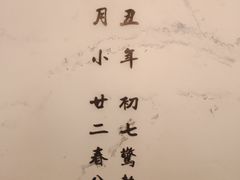 丑年 初七驚
月小 廿二春分